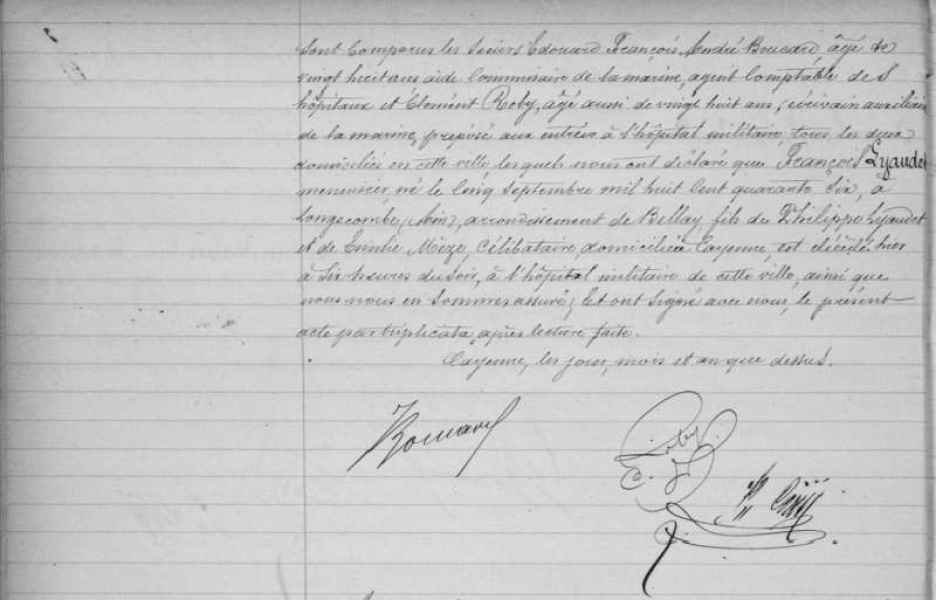 Sont comparus les sieurs Edouard François André Bouvard, âgé de
vingt huit ans aide Commissaire de la marine, agent Comptable des
hôpitaux et Clément Roby, âgé aussi de vingt huit ans, écrivain auxiliaire
de la marine, préposé aux entrées à l'hôpital militaire, tous les deux
domiciliés en cette ville, lesquels nous ont déclaré que François Lyaudet
menuisier, né le Cinq Septembre mil huit Cent quarante Six, à
Longecombe, (Ain), arrondissement de Belley, fils de Philippe Lyaudet
et de Miège, Célibataire, domicilié à Cayenne, est décédé hier
à Six heures du soir, à l'hôpital militaire de cette ville, ainsi que
nous nous en sommes assuré; Et ont signé avec nous, le présent
acte par triplicata, après lecture faite.
Cayenne, les jour, mois et an que dessus.
Bouvard
C. Roby